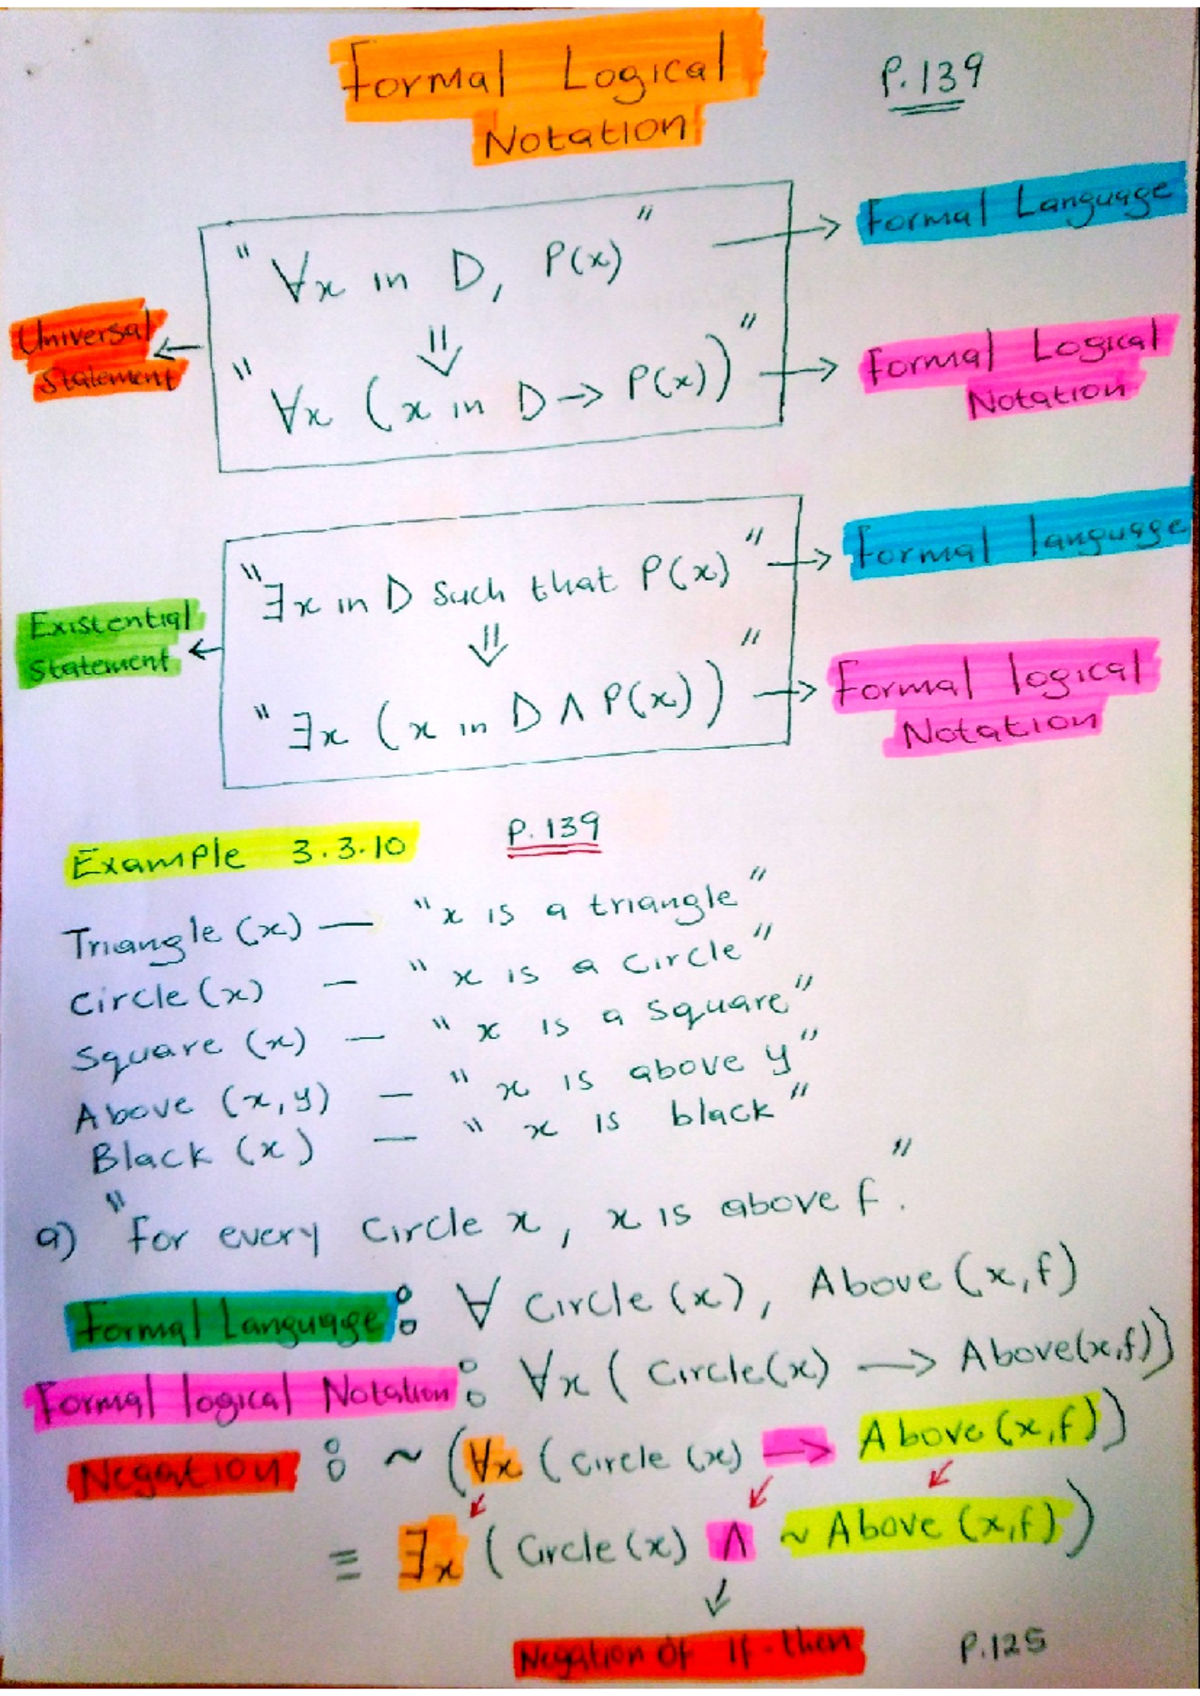 Formal Logical
Notation
P.139
"∀x in D, P(x)"
Formal Language
⇓
Universal
Statement
"∀x (x in D → P(x))"
Formal Logical
Notation
"∃x in D Such that P(x)"
Formal language
⇓
Existential
Statement
"∃x (x in D ∧ P(x))"
Formal logical
Notation
Example 3.3.10
P.139
Triangle (x) — "x is a triangle"
Circle (x) — "x is a Circle"
Square (x) — "x is a Square"
Above (x,y) — "x is above y"
Black (x) — "x is black"
a) "for every Circle x, x is above f."
Formal Language : ∀ Circle (x), Above (x,f)
Formal logical Notation : ∀x ( Circle(x) → Above(x,f))
Negation : ~ (∀x ( Circle (x) → Above (x,f))
≡ ∃x ( Circle (x) ∧ ~ Above (x,f))
Negation of if-then
P.125